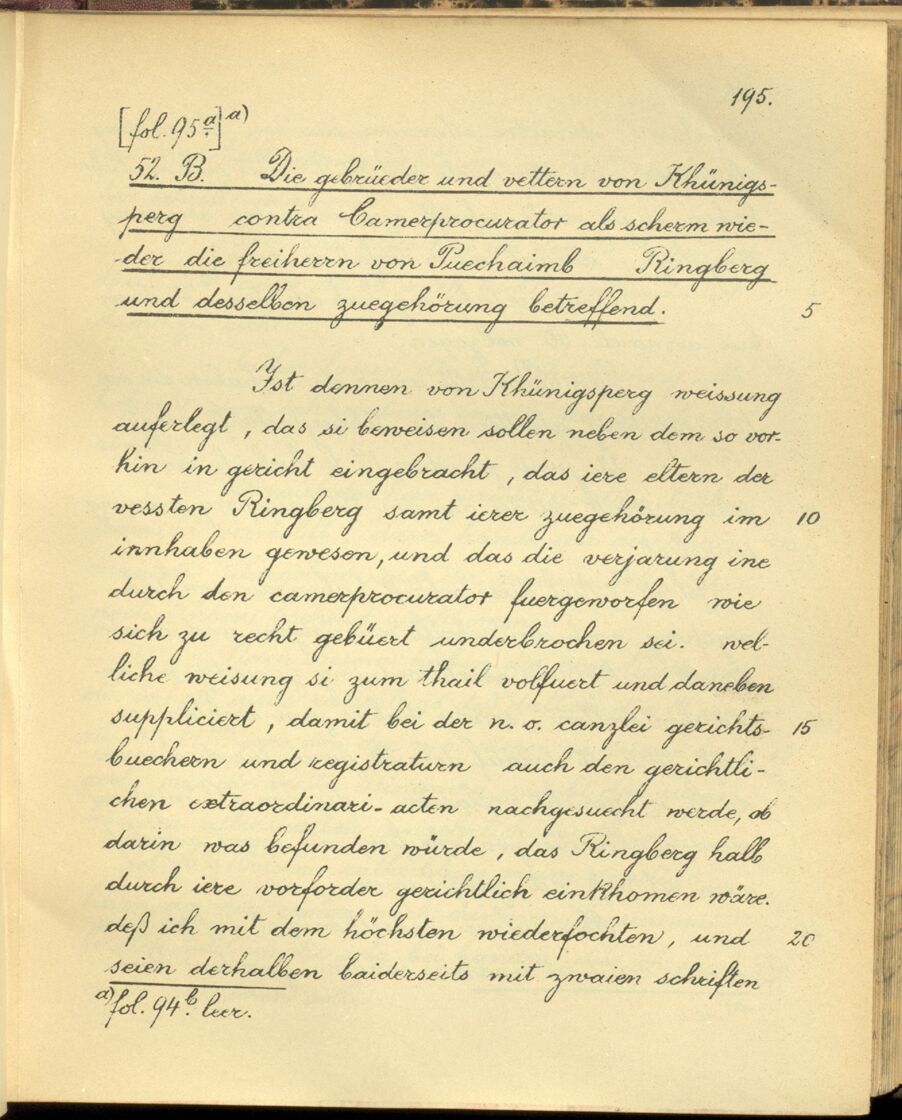 195.
[fol. 95ª]ª⁾
52. B. Die gebrüeder und vettern von Khünigs-
perg contra Camerprocurator als scherm wie-
der die freiherrn von Puechaimb Ringberg
und desselben zuegehörung betreffend. 5
Ist dennen von Khünigsperg weissung
auferlegt, das si beweisen sollen neben dem so vor-
hin in gericht eingebracht, das iere eltern der
vessten Ringberg samt ierer zuegehörung im 10
innhaben gewesen, und das die verjarung ine
durch den camerprocurator fuergeworfen wie
sich zu recht gebüert underbrochen sei. wel-
liche weisung si zum thail volfuert und daneben
suppliciert, damit bei der n. o. canzlei gerichts- 15
buechern und registraturn auch den gerichtli-
chen extraordinari-acten nachgesuecht werde, ob
darin was befunden würde, das Ringberg halb
durch iere vorforder gerichtlich einkhomen wäre.
deß ich mit dem höchsten wiederfochten, und 20
seien derhalben baiderseits mit zwaien schriften
a) fol. 94b. leer.